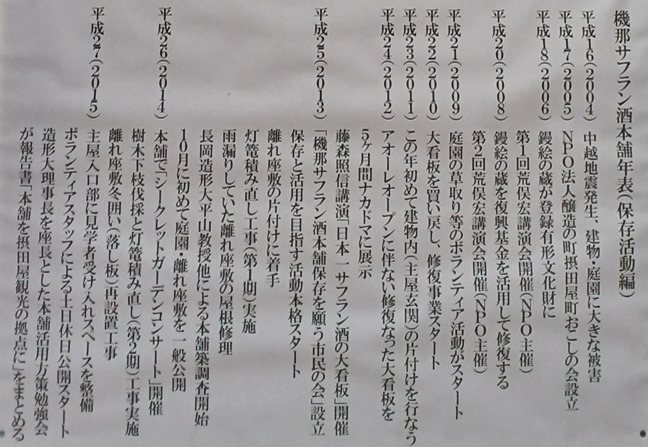 機那サフラン酒本舗年表(保存活動編)
平成16(2004) 中越地震発生、建物・庭園に大きな被害
平成17(2005) NPO法人醸造の町摂田屋町おこしの会設立
平成18(2006) 鏝絵の蔵が登録有形文化財に
第1回荒俣宏講演会開催(NPO主催)
平成20(2008) 鏝絵の蔵を復興基金を活用して修復する
第2回荒俣宏講演会開催(NPO主催)
平成21(2009) 庭園の草取り等のボランティア活動がスタート
平成22(2010) 大看板を買い戻し、修復事業スタート
平成23(2011) この年初めて建物内(主屋玄関)の片付けを行なう
平成24(2012) アオーレオープンに伴ない修復なった大看板を
5ヶ月間ナカドマに展示
藤森照信講演「日本一サフラン酒の大看板」開催
平成25(2013) 「機那サフラン酒本舗保存を願う市民の会」設立
保存と活用を目指す活動本格スタート
離れ座敷の片付けに着手
灯篭積み直し工事(第1期)実施
雨漏りしていた離れ座敷の屋根修理
長岡造形大平山教授他による本舗築調査開始
10月に初めて庭園・離れ座敷を一般公開
平成26(2014) 本舗で「シークレットガーデンコンサート」開催
樹木下枝伐採と灯篭積み直し(第2期)工事実施
離れ座敷冬囲い(落し板)再設置工事
平成27(2015) 主屋入口部に見学者受け入れスペースを整備
ボランティアスタッフによる土日休日公開スタート
造形大理事長を座長とした本舗活用方策勉強会
が報告書「本舗を摂田屋観光の拠点に」をまとめる